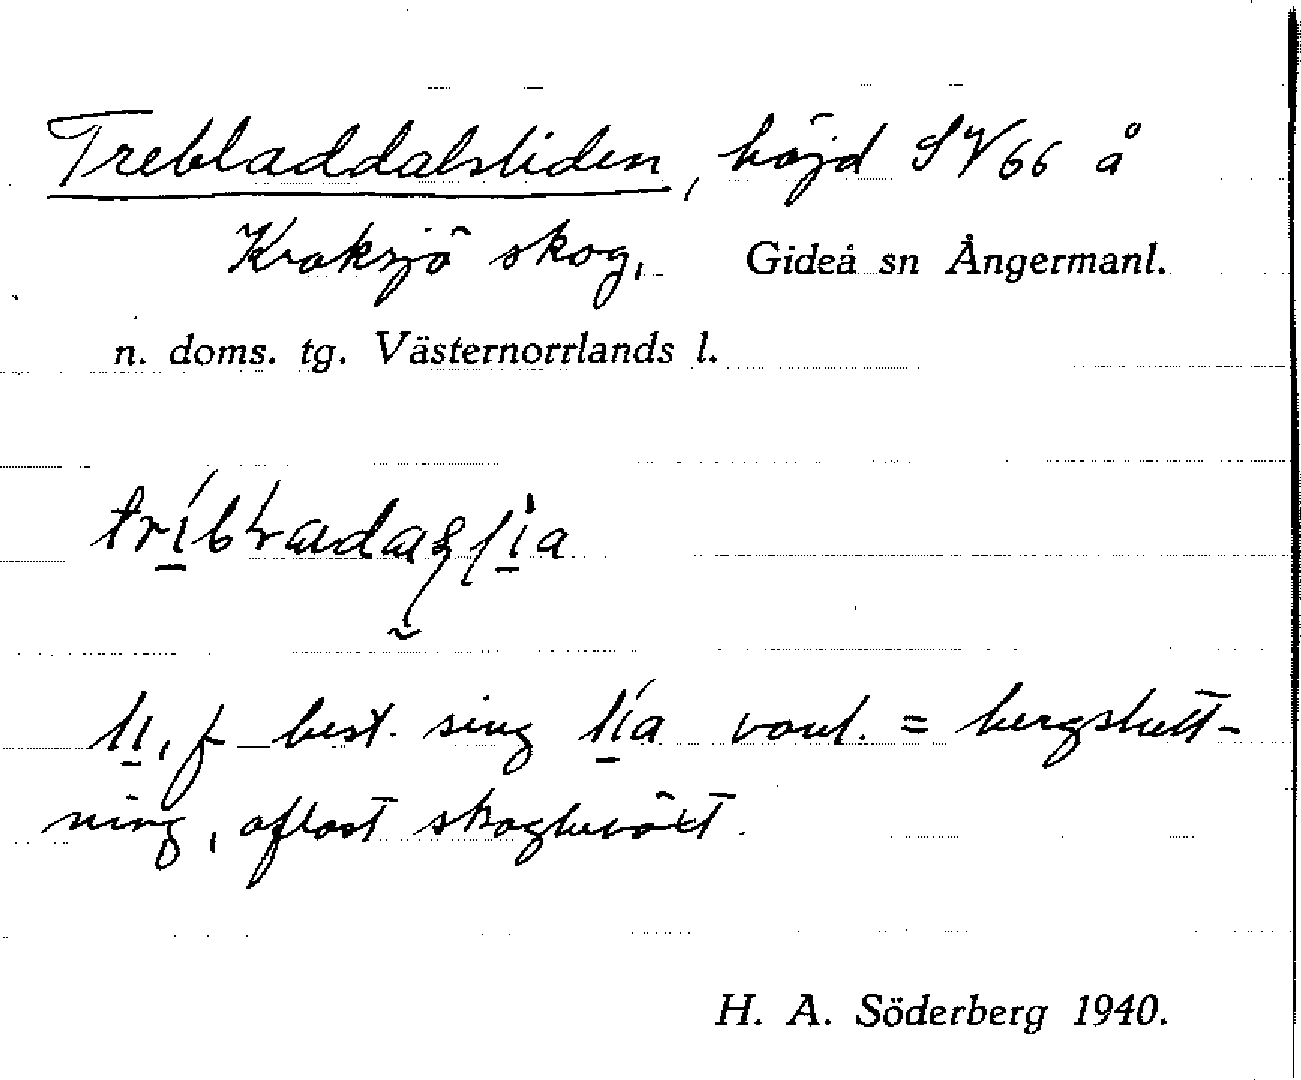 Trebladdalsliden, höjd SV 66 å
Kroksjö skog, Gideå sn Ångermanl.
n. doms. tg. Västernorrlands l.
li, f best. sing lia vanl. = bergslutt-
ning, oftast skogbeväxt.
H. A. Söderberg 1940.